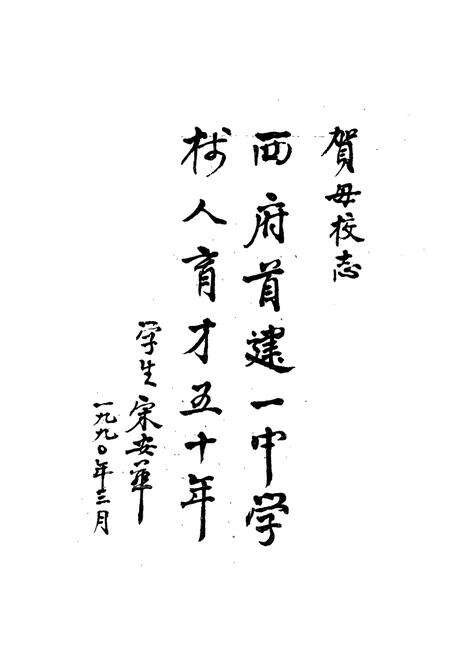 贺母校志
西府首建一中学
树人育才五十年
学生宋安华
一九九〇年三月